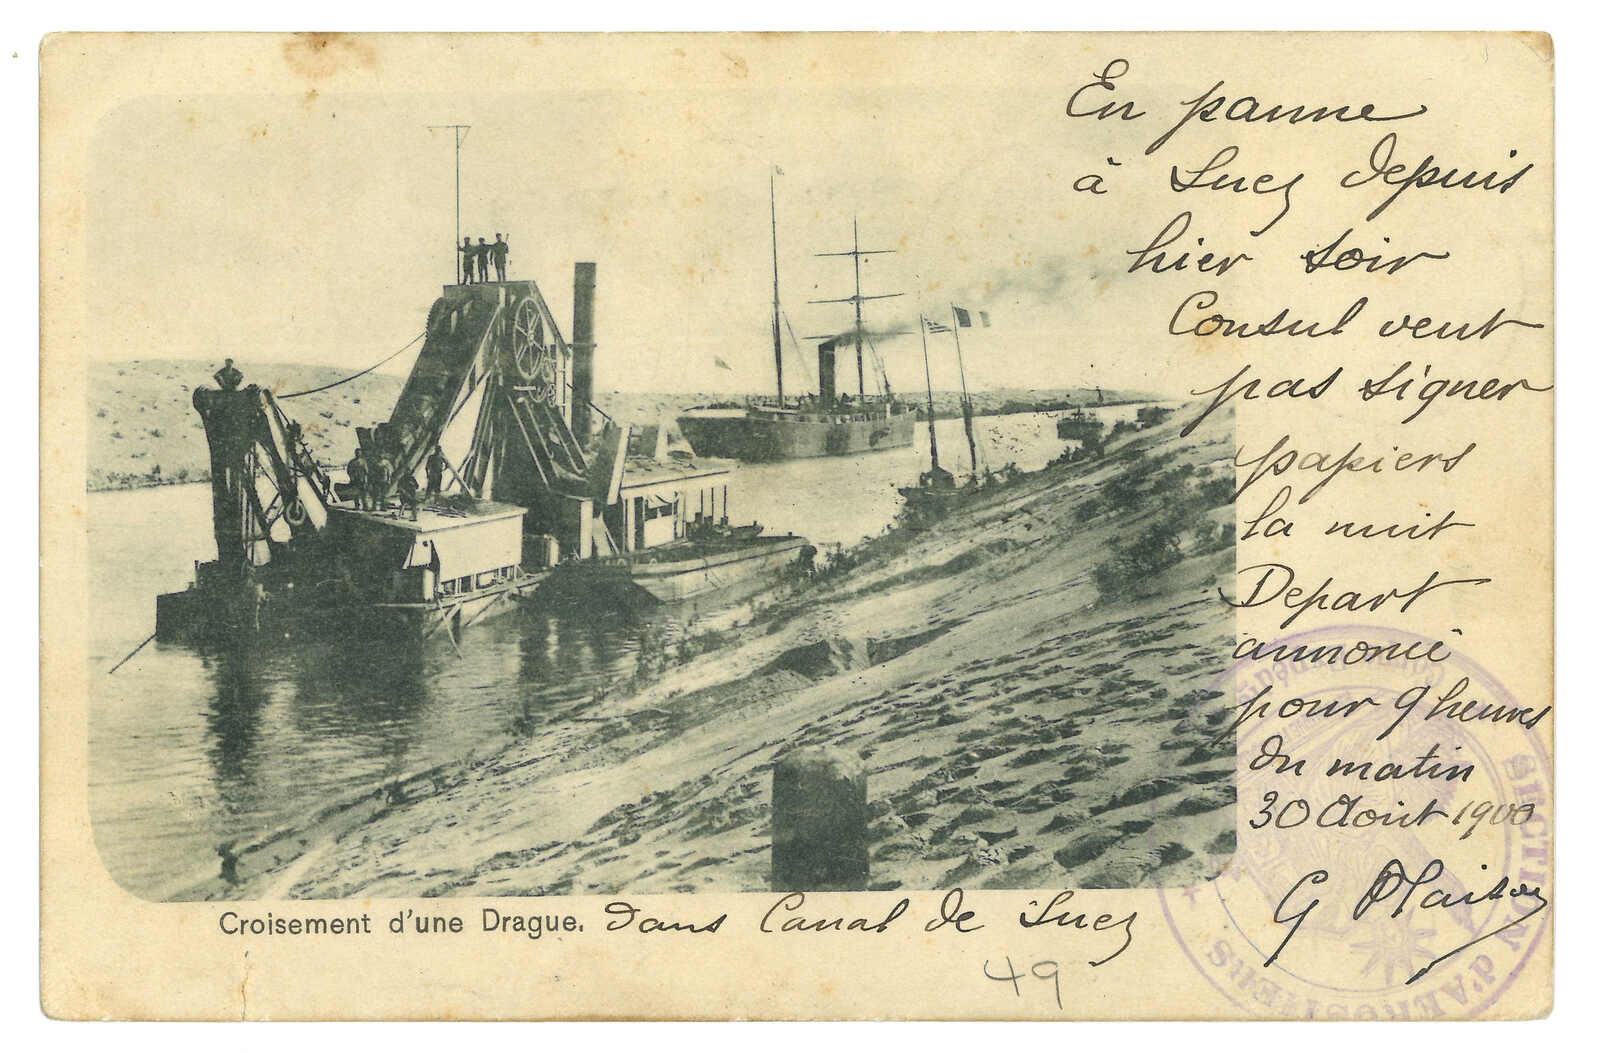 En panne
à Suez depuis
hier soir
Consul veut
pas signer
papiers
la nuit
Depart
annoncé
pour 9 heures
du matin
30 Aout 1900
G
Croisement d'une Drague. dans Canal de Suez
49
SECTION d'AEROSTIERS